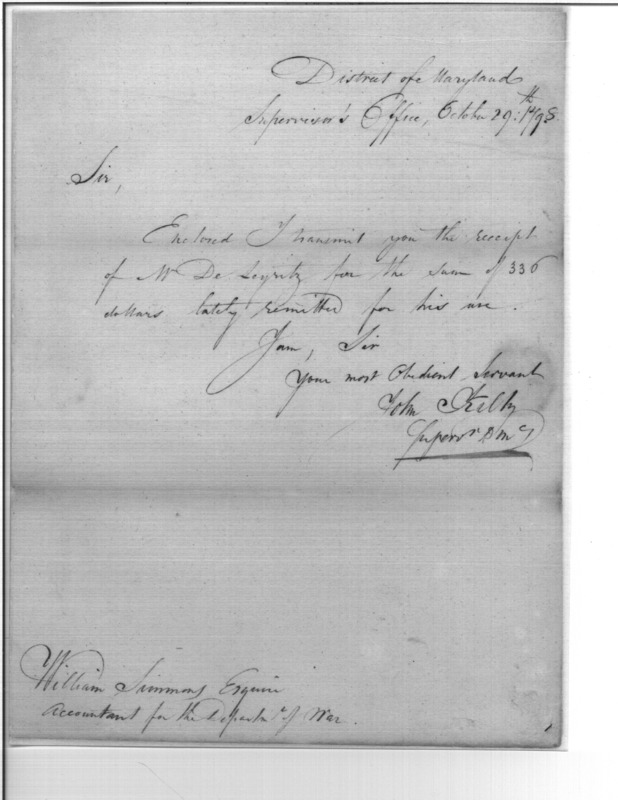 District of Maryland
Supervisor's Office, October 29th 1798
Sir,
Enclosed I transmit you the receipt
of Mr De for the sum of 336
dollars lately remitted for his use.
I am, Sir
Your most Obedient Servant
John
Supervr D Md
William Simmons Esquire
Accountant for the Departmt of War.